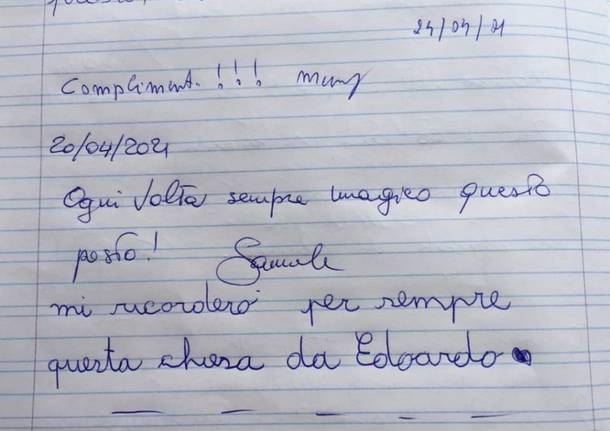 24/04/21
Compliment. !!!
20/04/2021
Ogni Volta sempre magico questo
posto! Samuele
mi ricorderò per sempre
questa chiesa da Edoardo